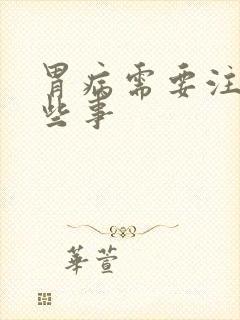 胃病需要注
些事
華萱